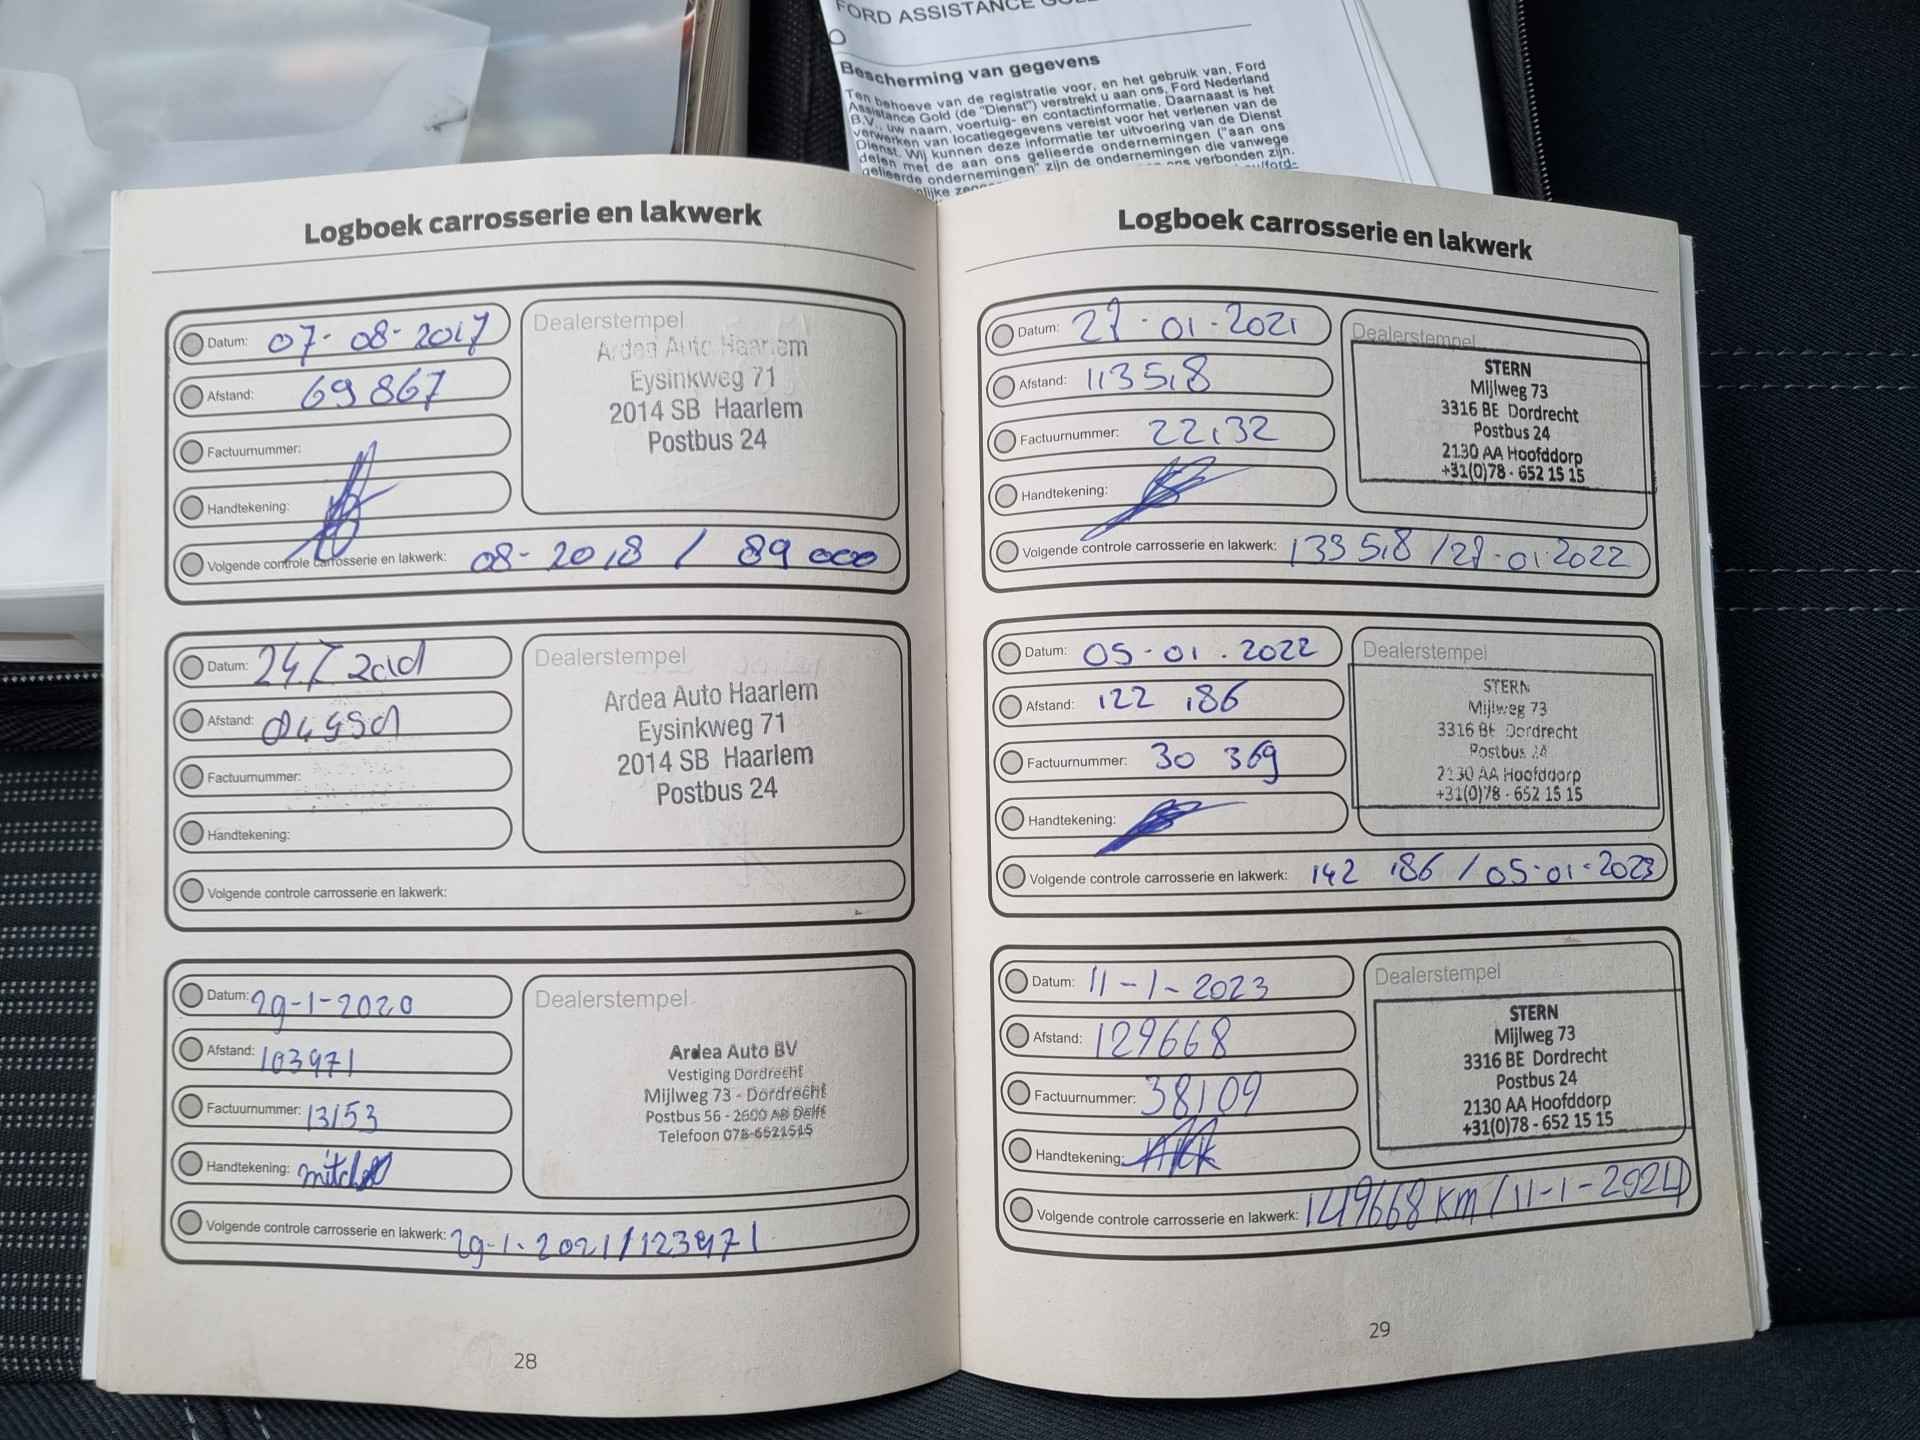 FORD ASSISTANCE
Bescherming van gegevens
Ten behoeve van de registratie voor, en het gebruik van, Ford
Assistance Gold (de "Dienst") verstrekt u aan ons, Ford Nederland
B.V., uw naam, voertuig- en contactinformatie. Daarnaast is het
verwerken van locatiegegevens vereist voor het verlenen van de
Dienst. Wij kunnen deze informatie ter uitvoering van de Dienst
delen met de aan ons gelieerde ondernemingen ("aan ons
gelieerde ondernemingen" zijn de ondernemingen die vanwege
ons verbonden zijn.
Logboek carrosserie en lakwerk
Datum: 07-08-2017
Afstand: 69867
Factuurnummer:
Handtekening:
Volgende controle carrosserie en lakwerk: 08-2018 / 89000
Dealerstempel
Ardea Auto Haarlem
Eysinkweg 71
2014 SB Haarlem
Postbus 24
Datum:
Afstand:
Factuurnummer:
Handtekening:
Volgende controle carrosserie en lakwerk:
Dealerstempel
Ardea Auto Haarlem
Eysinkweg 71
2014 SB Haarlem
Postbus 24
Datum: 29-1-2020
Afstand: 103971
Factuurnummer: 13153
Handtekening: mitchell
Volgende controle carrosserie en lakwerk: 29-1-2021/123971
Dealerstempel
Ardea Auto BV
Vestiging Dordrecht
Mijlweg 73 - Dordrecht
Postbus 56 - 2600 AB Delft
Telefoon 078-6521515
28
Logboek carrosserie en lakwerk
Datum: 27-01-2021
Afstand: 113518
Factuurnummer: 22132
Handtekening:
Volgende controle carrosserie en lakwerk: 133518 / 27-01-2022
Dealerstempel
STERN
Mijlweg 73
3316 BE Dordrecht
Postbus 24
2130 AA Hoofddorp
+31(0)78 - 652 15 15
Datum: 05-01-2022
Afstand: 122 186
Factuurnummer: 30 369
Handtekening:
Volgende controle carrosserie en lakwerk: 142 186 / 05-01-2023
Dealerstempel
STERN
Mijlweg 73
3316 BE Dordrecht
Postbus 24
2130 AA Hoofddorp
+31(0)78 - 652 15 15
Datum: 11-1-2023
Afstand: 129668
Factuurnummer: 38109
Handtekening:
Volgende controle carrosserie en lakwerk: 149668 km / 11-1-2024
Dealerstempel
STERN
Mijlweg 73
3316 BE Dordrecht
Postbus 24
2130 AA Hoofddorp
+31(0)78 - 652 15 15
29